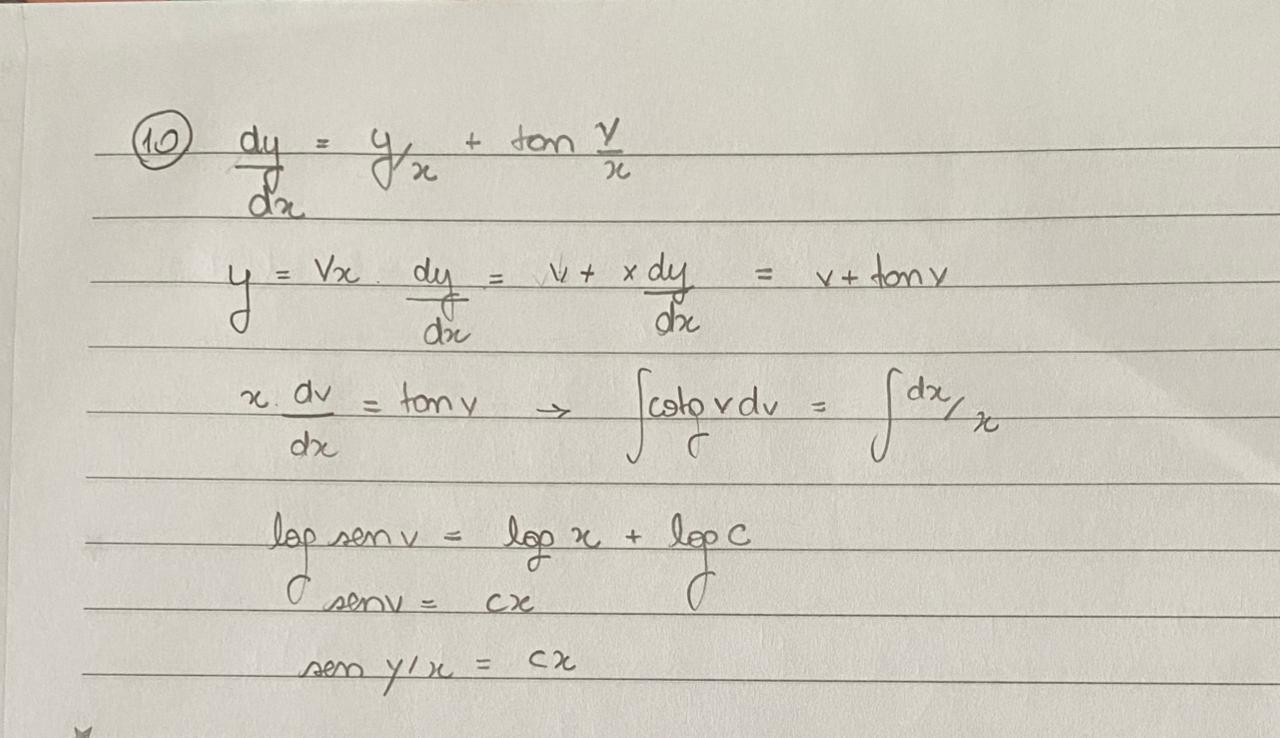 10 dy/dx = y/x + tan y/x
y = Vx. dy/dx = v + x dy/dx = v + tan v
x. dv/dx = tan v → ∫cotg v dv = ∫dx/x
log sen v = log x + log c
sen v = cx
sen y/x = cx